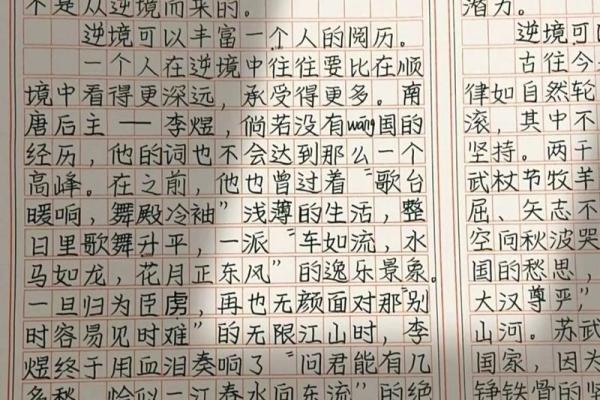 不是从逆境而来的。
逆境可以丰富一个人的阅历。
一个人在逆境中往往要比在顺
境中看得更深远，承受得更多。南
唐后主——李煜，倘若没有wáng国的
经历，他的词也不会达到那么一个
高峰。在之前，他也曾过着“歌台
暖响，舞殿冷袖”浅薄的生活，整
日里歌舞升平，一派“车如流，水
马如龙，花月正东风”的逸乐景象。
一旦归为臣虏，再也无颜面对那“别
时容易见时难”的无限江山时，李
煜终于用血泪奏响了“问君能有几
多愁，恰似一江春水向东流”的绝
潜力。
逆境可
古往今
律如自然轮
滚，其中不
坚持。两千
武杖节牧羊
屈、矢志不
空向秋波哭
国的愁思，
大汉尊严”
山河。苏武
国家，因为
铮铁骨的坚